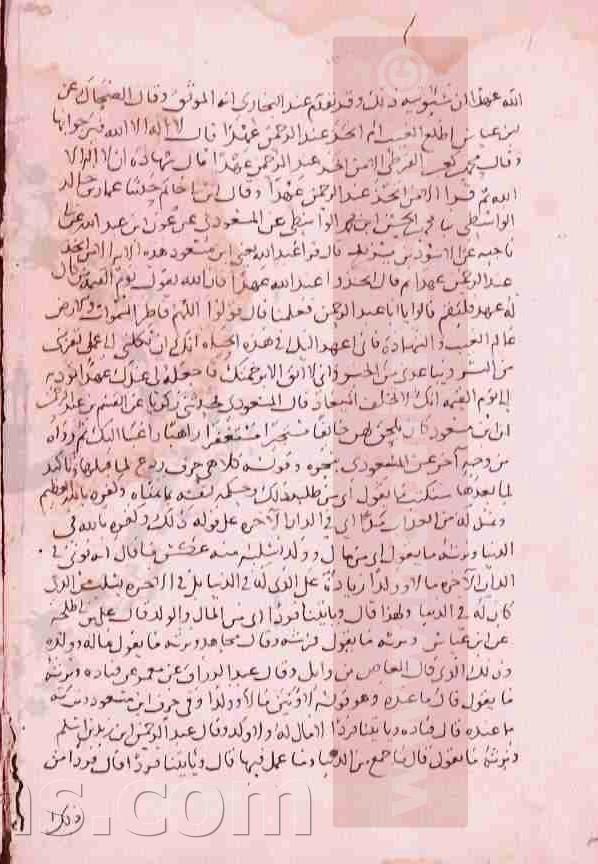 الله عهدا ان سيوتيه ذلك وقد تقدم عند البخاري انه الموثق وقال الضحاك عن
ابن عباس اطلع الغيب ام اتخذ عند الرحمن عهدا قال لا اله الا الله فيرجو بها
وقال محمد بن كعب القرظي الا من اتخذ عند الرحمن عهدا قال شهادة ان لا اله الا
الله ثم قرا الا من اتخذ عند الرحمن عهدا وقال ابن ابي حاتم حدثنا عثمان بن خالد
الواسطي ثنا محمد بن الحسن الواسطي عن المسعودي عن عون ابن عبد الله عن ابي
فاخته عن الاسود بن يزيد قال قرا عبد الله يعني ابن مسعود هذه الاية الا من اتخذ
عند الرحمن عهدا ثم قال اتخذوا عند الله عهدا فان الله يقول يوم القيمة من كان
له عهد فليقم قالوا يا ابا عبد الرحمن فعلمنا قال قولوا اللهم فاطر السموات والارض
عالم الغيب والشهادة فاني اعهد اليك في هذه الحياة انك ان تكلني الى عملي يقربني
من الشر ويباعدني من الخير واني لا اثق الا برحمتك فاجعله لي عندك عهدا توديه
الى يوم القيمة انك لا تخلف الميعاد قال المسعودي فحدثني زكريا عن القسم بن عبد الرحمن
ان ابن مسعود كان يلحق بهن خائفا مستجيرا مستغفرا راهبا راغبا اليك ثم رواه
من وجه آخر عن المسعودي بنحوه وقوله كلا هي حرف ردع لما قبلها وتاكيد
لما بعدها سنكتب ما يقول اي من طلبه ذلك وحكمه لنفسه بما يتمناه وكفره بالله العظيم
ونمد له من العذاب مدا اي في الدار الآخرة على قوله ذلك وكفره بالله في
الدنيا ونرثه ما يقول اي من مال وولد نسلبه منه عكس ما قال انه يوتى في
الدار الآخرة مالا وولدا زيادة على الذي له في الدنيا بل في الآخرة يسلب من الذي
كان له في الدنيا ولهذا قال وياتينا فردا اي من المال والولد قال علي بن ابي طلحه
عن ابن عباس ونرثه ما يقول نرثه وقال مجاهد ونرثه ما يقول ماله وولده
وذلك الذي قال العاص بن وايل وقال عبد الرزاق عن معمر عن قتاده ونرثه
ما يقول قال ما عنده وهو قوله لاوتين مالا وولدا وفي حرف ابن مسعود ونرثه
ما عنده قال قتاده وياتينا فردا لا مال له ولا ولد وقال عبد الرحمن ابن زيد بن اسلم
ونرثه ما يقول قال ما جمع من الدنيا وما عمل فيها قال وياتينا فردا قال فردا من
ذلك
ns.com